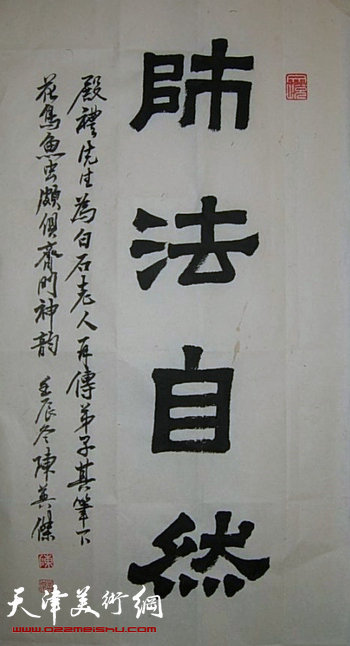 師法自然
殿禮先生為白石老人再傳弟子其筆下
花鳥魚虫頗俱齊門神韵 壬辰冬陳英傑
天津美術網
www.022meishu.com